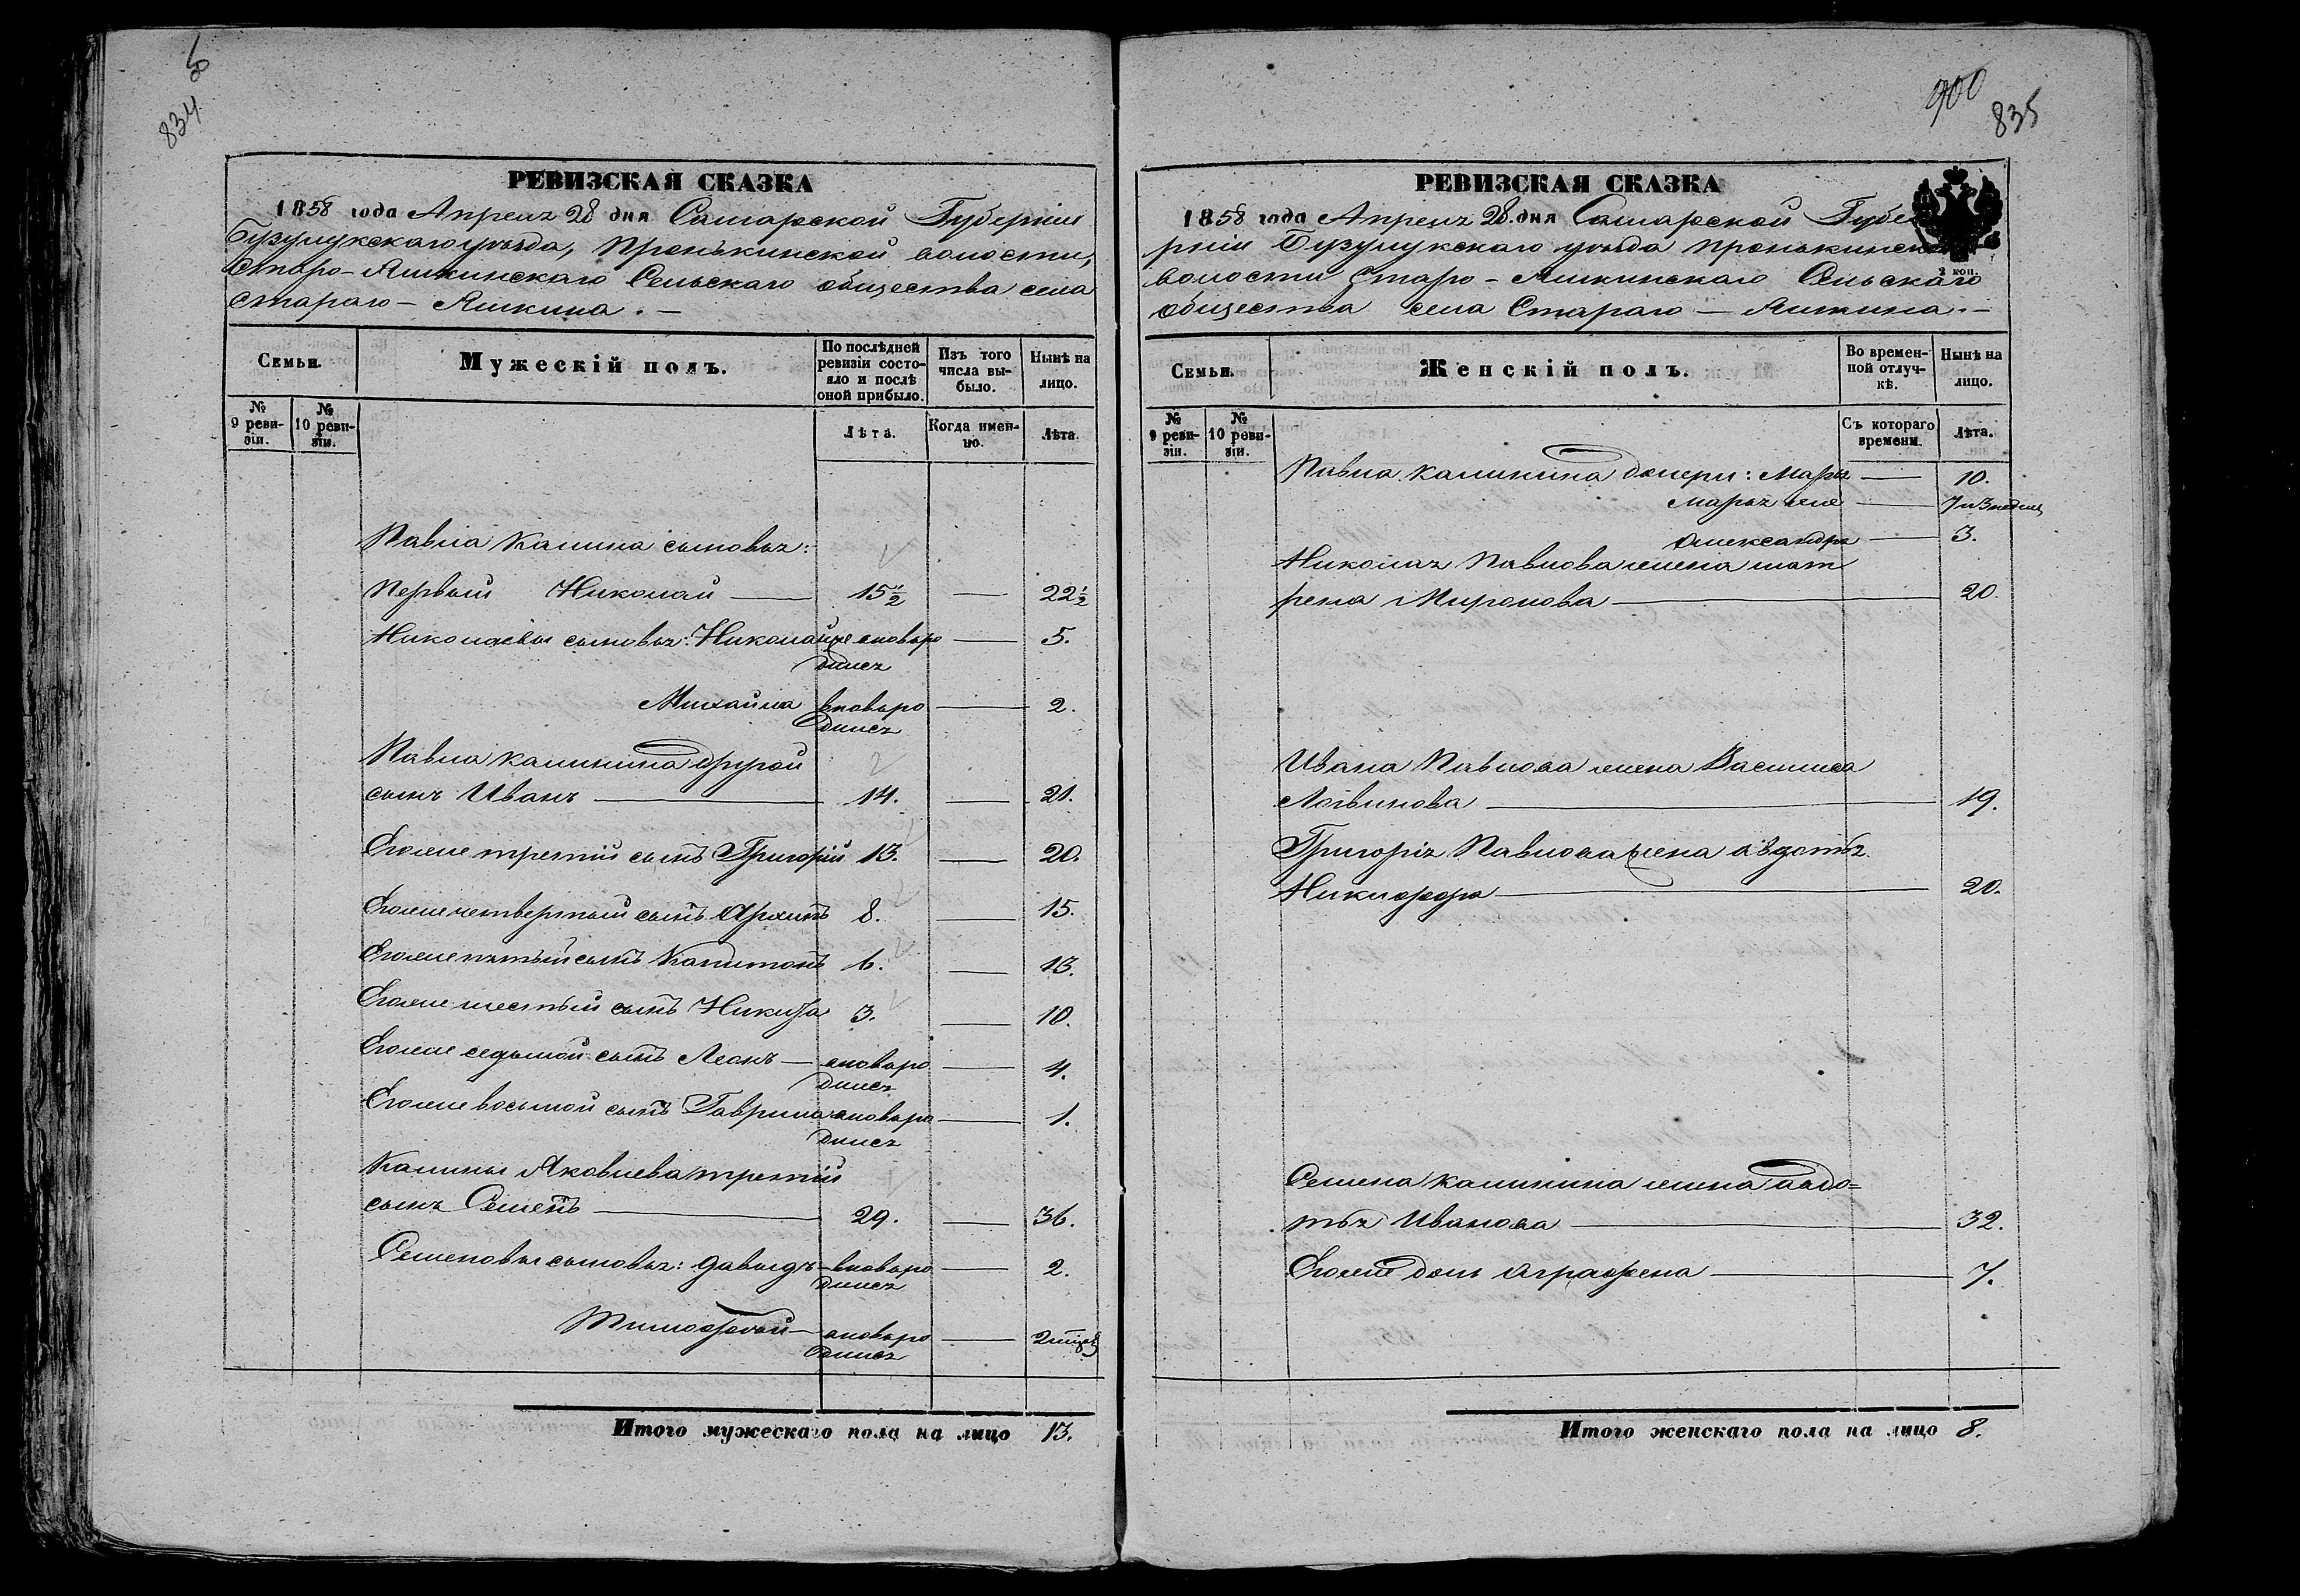 834
900
835
РЕВИЗСКАЯ СКАЗКА
1858 года Апреля 28 дня Самарской Губерніи
Бузулукскаго уѣзда, Пронькинской волости,
Старо-Яшкинскаго Сельскаго общества села
Стараго - Яшкина. -
Семьи.
Мужескій полъ.
По послѣдней ревизіи состояло и послѣ оной прибыло.
Изъ того числа выбыло.
Нынѣ на лицо.
№ 9 ревизіи.
№ 10 ревизіи.
Лѣта.
Когда именно.
Лѣта.
Павла Калина сыновья:
Первый Николай — 15½ — 22½
Николаевы сыновья: Николай же вновьро — 5.
дился
Михайла вновьро — 2.
дился
Павла Калинина другой
сынъ Иванъ — 14. — 21.
Егоже третій сынъ Григорій 13. — 20.
Егоже четвертый сынъ Архипъ 8. — 15.
Егоже пятый сынъ Капитонъ 6. — 13.
Егоже шестый сынъ Никита 3. — 10.
Егоже седьмой сынъ Леонъ — вновьро — 4.
дился
Егоже восьмой сынъ Гаврила вновьро — 1.
дился
Калины Яковлева третій
сынъ Семенъ — 29. — 36.
Семеновы сыновья: Давыдъ — вновьро — 2.
дился
Тимофей — вновьро —
дился
Итого мужескаго пола на лицо 13.
РЕВИЗСКАЯ СКАЗКА
1858 года Апреля 28. дня Самарской Губе
рніи Бузулукскаго уѣзда Пронькинской
волости Старо - Яшкинскаго Сельскаго
общества села Стараго — Яшкина. -
2 коп.
Семьи.
Женскій полъ.
Во временной отлучкѣ.
Нынѣ на лицо.
№ 9 ревизіи.
№ 10 ревизіи.
Съ котораго времени.
Лѣта.
Павла Калинина дочери: Марья — 10.
Марья же — 7 и 3 недели
Александра — 3.
Николая Павлова жена Мат
рена Миронова — 20.
Ивана Павлова жена Василиса
Логвинова — 19.
Григорія Павлова жена Авдотья
Никифора — 20.
Семена Калинина жена Авдо=
тья Иванова — 32.
Егоже дочь Аграфена — 7.
Итого женскаго пола на лицо 8.